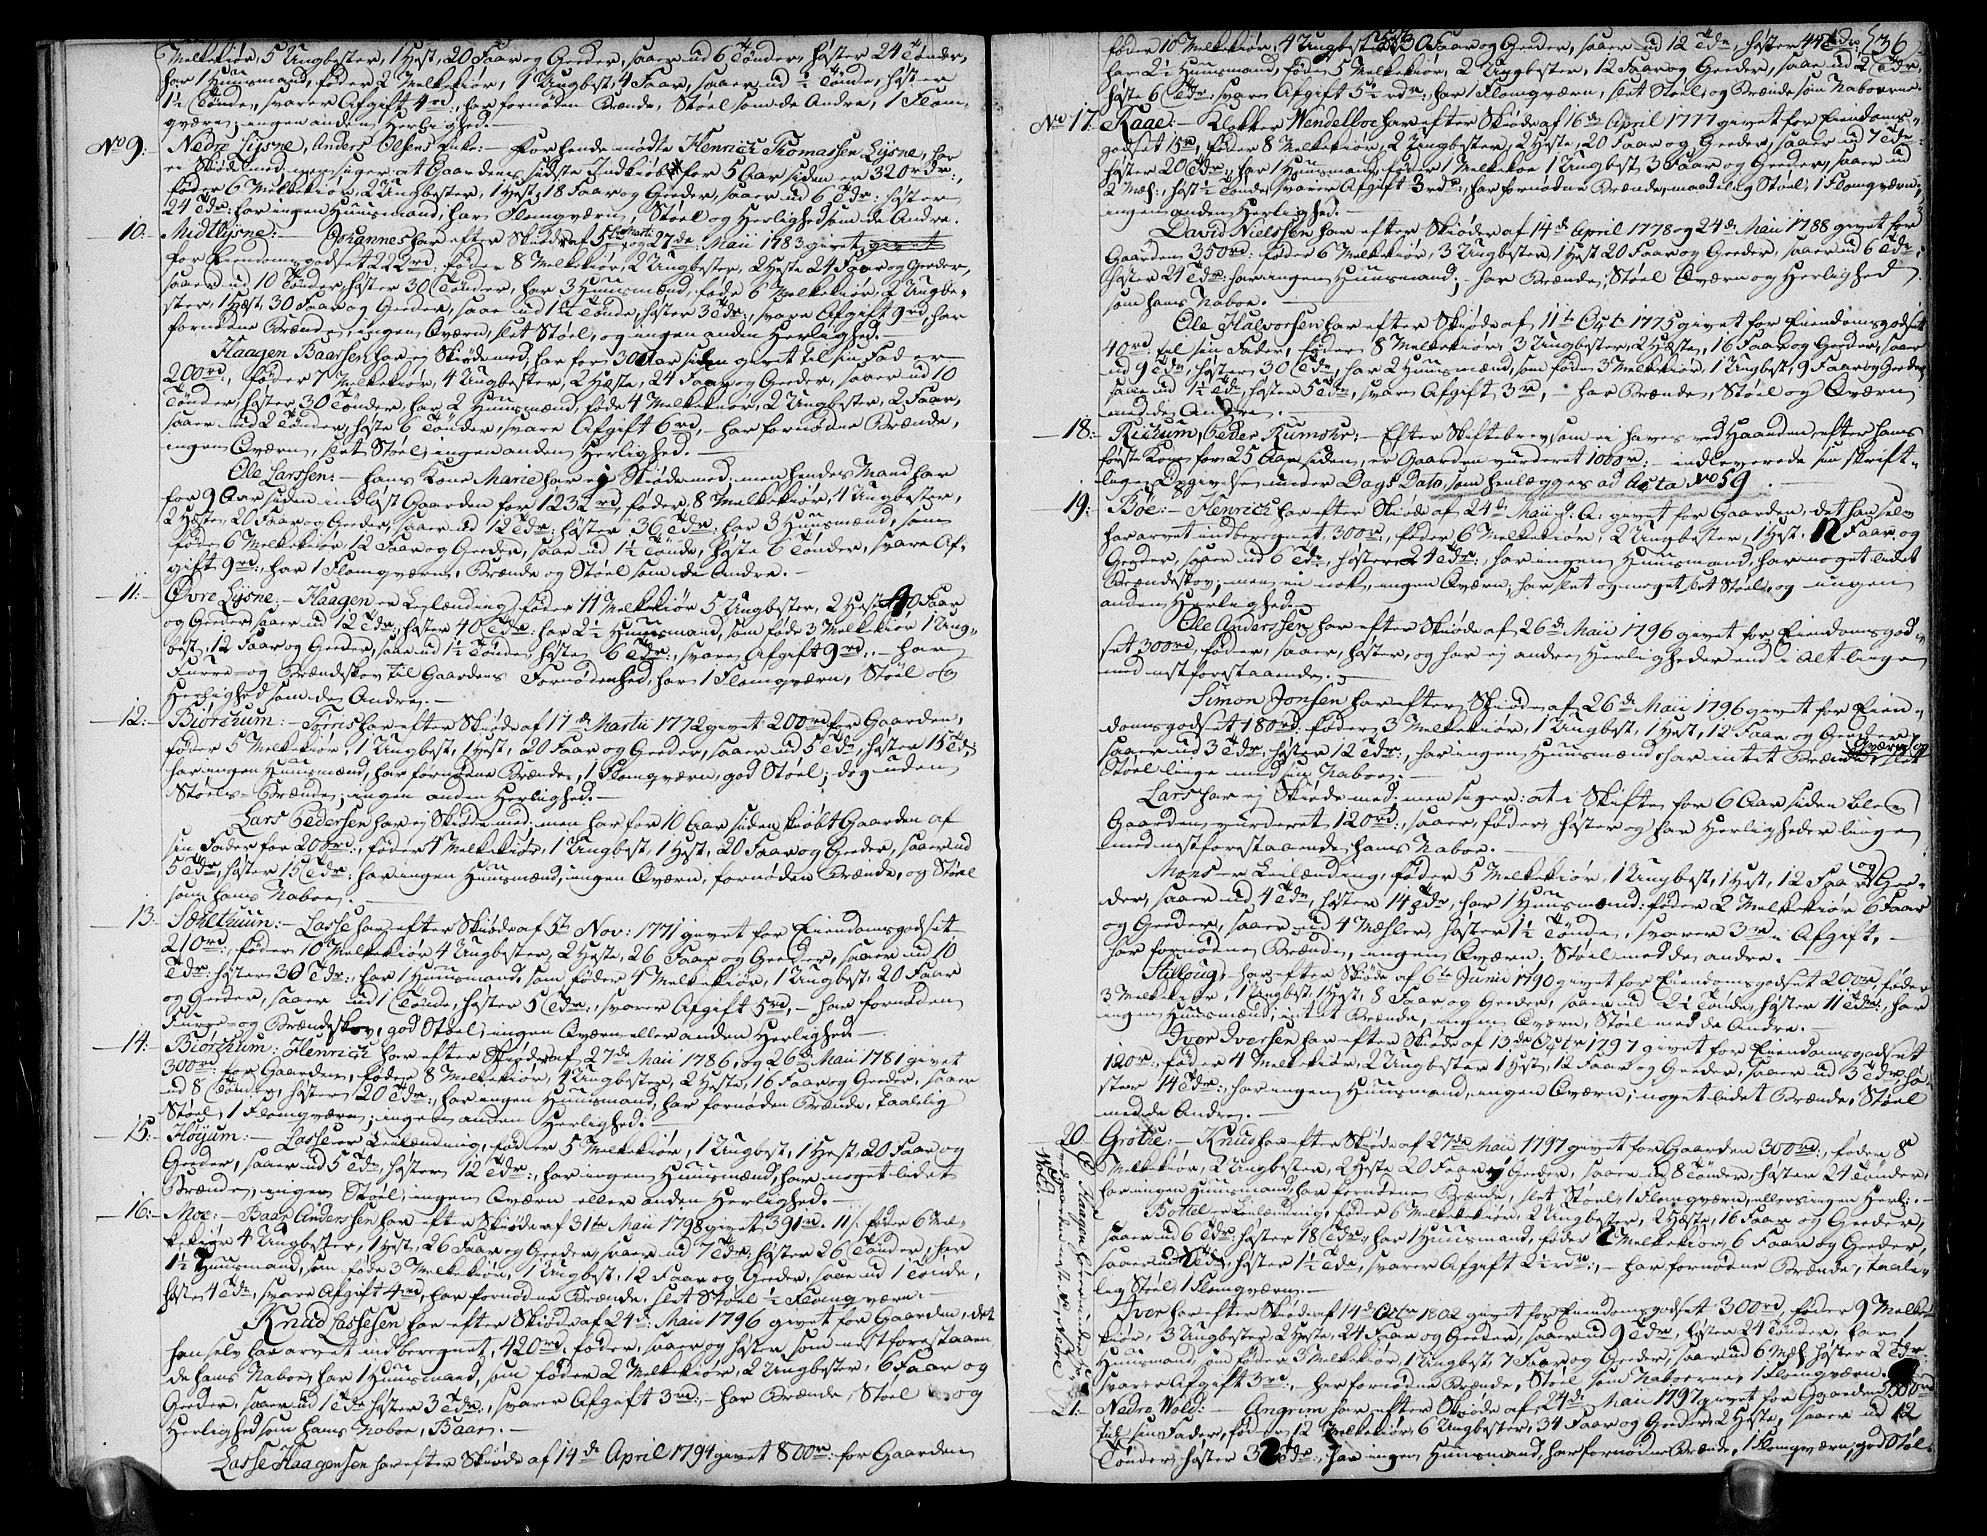 Melkekiør, 5 Ungbester, 1 Hest, 20 Faar og Geeder, saaer ud 6 Tønder, høster 24 Tønder,
har 1 Huusmand, føder 2 Melkekiør, 1 Ungbest, 4 Faar, saaer ud ½ Tønde, høster
1½ Tønde, svarer Afgift 4 rd, har fornøden Brænde, Støel som de Andre, 1 Flom-
qværn; ingen anden Herlighed.
No 9. Nedre Lysne, Anders Olsens Enke: – For hende mødte Henrich Thomassen Lysne, har
ei Skiøde med, men siger at Gaardens sidste Indkiøb for 5 Aar siden er 320 rdr:,
føder 6 Melkekiør, 2 Ungbester, 1 Hest, 18 Faar og Geeder, saaer ud 6 Tdr: høster
24 Tdr: har ingen Huusmand, har Flomqværn, Støel og Herlighed som de Andre.
10. Midt Lysne: – Johannes har efter Skiøde af 5te Martii og 27de Maii 1783 givet
for Eiendomsgodset 222 rd: føder 8 Melkekiør, 2 Ungbester, 2 Heste 24 Faar og Geeder,
saaer ud 10 Tønder, høster 30 Tønder, har 3 Huusmænd, føde 6 Melkekiør, 2 Ungbe-
ster, 1 Hæst, 30 Faar og Geeder, saae ud 1½ Tønde, høster 3 Tdr:, svare Afgift 9 rd, har
fornødne Brænde, ingen Qværn, slet Støel, og ingen anden Herlighed.
Haagen Baarsen har ej Skiøde med, har for 30 Aar siden givet til sin Fader
200 rd:, føder 7 Melkekiør, 4 Ungbester, 2 Hæste, 24 Faar og Geeder, saaer ud 10
Tønder, høster 30 Tønder, har 2 Huusmænd, føde 4 Melkekiør, 2 Ungbester, 2 Faar,
saaer ud 2 Tønder, høste 6 Tønder, svare Afgift 6 rd, – har fornødne Brænde,
ingen Qværn, slet Støel, ingen anden Herlighed. –
Ole Larssen: – hans Kone Marie har ej Skiøde med; men hendes Mand har
for 9 Aar siden indløst Gaarden for 1232 rd, føder 8 Melkekiør, 4 Ungbester,
2 Hæster, 20 Faar og Geeder, saaer ud 12 Tdr: høster 36 Tdr: har 3 Huusmænd, som
føde 6 Melkekiør, 12 Faar og Geeder, saae ud 1½ Tønde, høste 6 Tønder, svare Af-
gift 9 rd:, har 1 Flomqværn, Brænde og Støel som de Andre. –
11. Øvre Lysne, – Haagen er Leilænding, føder 11 Melkekiør 5 Ungbester, 2 Heste, 40 Faar
og Geeder, saaer ud 12 Tdr:, høster 40 Tdr: har 2½ Huusmand, som føde 3 Melkekiør 1 Ung-
best, 12 Faar og Geeder, saae ud 1½ Tønde, høste 6 Tdr:, svare Afgift 9 rd:. – har
Furre- og Brændeskov til Gaardens Fornødenhed, har 1 Flomqværn, Støel og
Herlighed som den Andre. –
12. Biørchum: – Joris har efter Skiøde af 17de Martii 1772 givet 200 rd for Gaarden,
føder 5 Melkekiør, 1 Ungbest, 1 Hest, 20 Faar og Geeder, saaer ud 5 Tdr, høster 15 Tdr
har ingen Huusmænd, har fornødne Brænde, 1 Flomqværn, god Støel; dog uden
Støels-Brænde; ingen anden Herlighed. –
Lars Pedersen har ej Skiøde med; men har for 10 Aar siden kiøbt Gaarden af
sin Fader for 200 rd:, føder 4 Melkekiør, 1 Ungbest, 1 Hest, 20 Faar og Geeder, saaer ud
5 Tdr, høster 15 Tdr: har ingen Huusmænd, ingen Qværn, fornøden Brænde, og Støel
som hans Naboe. –
13. Sælthuun: – Lasse har efter Skiøde af 5te Nov: 1771 givet for Eiendomsgodset
210 rd: føder 10 Melkekiør 4 Ungbester, 2 Heste, 26 Faar og Geeder, saaer ud 10
Tdr: høster 30 Tdr: har 1 Huusmand, som føder 4 Melkekiør, 1 Ungbest, 20 Faar
og Geeder, saaer ud 1 Tønde, høster 5 Tdr:, svarer Afgift 5 rd, – har fornøden
Furre- og Brændeskov, god Støel; ingen Qværn eller anden Herlighed –
14. Biørchum: Henrich har efter Skiøder af 27de Maii 1786, og 26de Maii 1781 givet
300 rd for Gaarden, føder 8 Melkekiør, 4 Ungbester, 2 Heste, 16 Faar og Geeder, saaer
ud 8 Tønder, høster 20 Tdr:, har ingen Huusmand, har fornøden Brænde, taalelig
Støel, 1 Flomqværn; ingen anden Herlighed. –
15. Høyum: – Lasse er Leilænding, føder 5 Melkekiør, 1 Ungbest, 1 Hest, 20 Faar og
Geeder, saaer ud 5 Tdr, høster 12 Tdr:, har ingen Huusmænd, har noget lidet
Brænde, ingen Støel, ingen Qværn eller anden Herlighed. –
16. Moe: – Baar Anderssen har efter Skiøde af 31te Maii 1798 givet 391 rd. 11 s: føder 6 Mel-
kekiør 4 Ungbester, 1 Hest, 26 Faar og Geeder, saaer ud 7 Tdr, høster 26 Tønder, har
1½ Huusmand, som føde 3 Melkekiør, 1 Ungbest, 12 Faar og Geeder, saae ud 1 Tønde,
høste 4 Tdr, svare Afgift 4 rd, har fornødne Brænde, slet Støel ½ Flomqværn. –
Knud Lassesen har efter Skiøde af 24de Maii 1796 givet for Gaarden, det
han selv har arvet indberegnet, 420 rd: føder, saaer og høster som nestforestaaen-
de hans Naboe, har 1 Huusmand, som føder 2 Melkekiør, 2 Ungbester, 6 Faar og
Geeder, saaer ud 1 Tdr høster 3 Tdr:, svarer Afgift 3 rd: – har Brænde, Støel og
Herlighed som hans Naboe, Baar. –
Lasse Haagensen har efter Skiøde af 14de April 1794 givet 800 rd: for Gaarden
536
føder 10 Melkekiør, 4 Ungbest, 30 Faar og Geeder, saaer ud 12 Tdr, høster 44 Tdr:
har 2½ Huusmand, føde 5 Melkekiør, 2 Ungbester, 12 Faar og Geeder, saae ud 2 Tdr,
høste 6 Tdr: svare Afgift 5½ rd:, har 1 Flomqværn, slet Støel, og Brænde som Naboerne.
No 17. Raae: – Klokker Wendelboe har efter Skiøde af 16de April 1777 givet for Eiendoms-
godset 15 rd, føder 8 Melkekiør, 2 Ungbester, 2 Heste, 20 Faar og Geeder, saaer ud 7 Tdr:
høster 20 Tdr:, har 1 Huusmand, føder 1 Melkekoe 1 Ungbest, 3 Faar og Geeder, saaer ud
2 Mæl:, høst ½ Tønde, svarer Afgift 3 rd:, har fornødne Brænde, maadelig Støel, 1 Flomqværn;
ingen anden Herlighed. –
David Nielssen har efter Skiøder af 14de April 1778 og 24de Maii 1788 givet for
Gaarden 350 rd: føder 6 Melkekiør, 3 Ungbester, 1 Hest 20 Faar og Geeder, saaer ud 6 Tdr:
høster 24 Tdr: har ingen Huusmand; har Brænde, Støel Qværn og Herlighed
som hans Naboe. –
Ole Halvorsen har efter Skiøde af 11te Oct. 1775 givet for Eiendomsgodset
40 rd til sin Fader, føder 8 Melkekiør, 3 Ungbester, 2 Hæste, 16 Faar og Geeder, saaer
ud 9 Tdr, høster 30 Tdr, har 2 Huusmænd, som føde 3 Melkekiør, 1 Ungbest, 9 Faar og Geeder
saae ud 1½ Tdr, høster 5 Tdr, svare Afgift 3 rd, – har Brænde, Støel og Qværn
med de Andre. –
18. Richum, Peder Rumohr: – Efter Skiftebrev som ei haves ved Haanden, efter hans
første Kone for 25 Aar siden, er Gaarden vurderet 1000 rd: – indleverede sin skrift-
lige Opgivelse under Dags Dato, som henlægges ad Acta No 59. –
19. Bøe: – Henrich har efter Skiøde af 24de Maii d. A. givet for Gaarden, det han selv
har arvet indberegnet, 300 rd:, føder 6 Melkekiør, 2 Ungbester, 1 Hest, 12 Faar og
Geeder, saaer ud 6 Tdr, høster 24 Tdr:, har ingen Huusmand, har noget lidet
Brændeskov; men ei nok, ingen Qværn, har slet og meget let Støel, og ingen
anden Herlighed. –
Ole Anderssen har efter Skiøde af 26de Maii 1796 givet for Eiendomsgod-
set 300 rd, føder, saaer, høster, og har ej andre Herligheder end i Alt liigen
med nestforestaaende. –
Simon Jonsen har efter Skiøde af 26de Maii 1796 givet for Eien-
domsgodset 180 rd: føder 3 Melkekiør, 1 Ungbest, 1 Hest, 12 Faar og Geeder,
saaer ud 3 Tdr: høster 12 Tdr:, har ingen Huusmænd, har intet Brænde, Qværn og slet
Støel liige med sin Naboe. –
Lars har ej Skiøde med; men siger: at i Skifte for 6 Aar siden blev
Gaarden vurderet 120 rd:, saaer, føder, høster og har Herligheder liigen
med nestforestaaende hans Naboe. –
Mons er Leilænding, føder 5 Melkekiør, 1 Ungbest, 1 Hest, 12 Faar og Gee-
der, saaer ud 4 Tdr, høster 14 Tdr, har 1 Huusmænd: føder 2 Melkekiør 6 Faar
og Geeder, saaer ud 4 Mæhler, høster 1½ Tønde, svarer 3 rd i Afgift. –
har fornødne Brænde, ingen Qværn; Støel med de andre. –
Stilloug, har efter Skiøde af 6te Junii 1790 givet for Eiendomsgodset 200 rd, føder
3 Melkekiør, 1 Ungbest, 1 Hest, 8 Faar og Geeder, saae ud 2½ Tønde, høster 11 Tdr:, har
ingen Huusmænd; intet Brænde, ingen Qværn, Støel med de Andre. –
Iver Iversen har efter Skiøde af 13de Octr 1797 givet for Eiendomsgodset
120 rd:, føder 4 Melkekiør, 2 Ungbester 1 Hest, 12 Faar og Geeder, saaer ud 3 Tdr, hø-
ster 14 Tdr:, har ingen Huusmand, ingen Qværn; noget lidet Brænde, Støel
med de Andre. –
20. Grøtte: – Knud har efter Skiøde af 27de Maii 1797 givet for Gaarden 300 rd:, føder 8
Melkekiør, 2 Ungbester, 2 Heste 20 Faar og Geeder, saaer ud 8 Tønder, høster 24 Tønder,
har ingen Huusmand, har fornødne Brænde, slet Støel, 1 Flomqværn, ellers ingen Herl: –
Bottel er Leilænding, føder 6 Melkekiør, 2 Ungbester, 2 Hæste, 16 Faar og Geeder,
saaer ud 6 Tdr: høster 18 Tdr:, har 1 Huusmand, føder 2 Melkekiør, 6 Faar og Geeder,
saaer ud Tdr, høster 1½ Tdr, svarer Afgift 2½ rd:, – har fornødne Brænde, taale-
lig Støel, 1 Flomqværn. –
Iver har efter Skiøde af 14de Octr 1802 givet for Eiendomsgodset 300 rd, føder 9 Melke-
kiør, 3 Ungbester, 2 Heste, 24 Faar og Geeder, saaer ud 9 Tdr, høster 24 Tønder, har 1
Huusmand, som føder 3 Melkekiør, 1 Ungbest, 7 Faar og Geeder, saae ud 6 Mæl, høster 2 Tdr:
svarer Afgift 3 rd:, – har fornødne Brænde, Støel som Naboerne, 1 Flomqværn.
1. Nedre Wold: – Angrim har efter Skiøde af 24de Maii 1797 givet for Gaarden
til sin Fader, føder 12 Melkekiør, 6 Ungbester, 34 Faar og Geeder, 2 Heste, saaer ud 12
Tønder, høster 32 Tdr:, har ingen Huusmand, har fornødne Brænde, 1 Flomqværn, god Støl
Wold